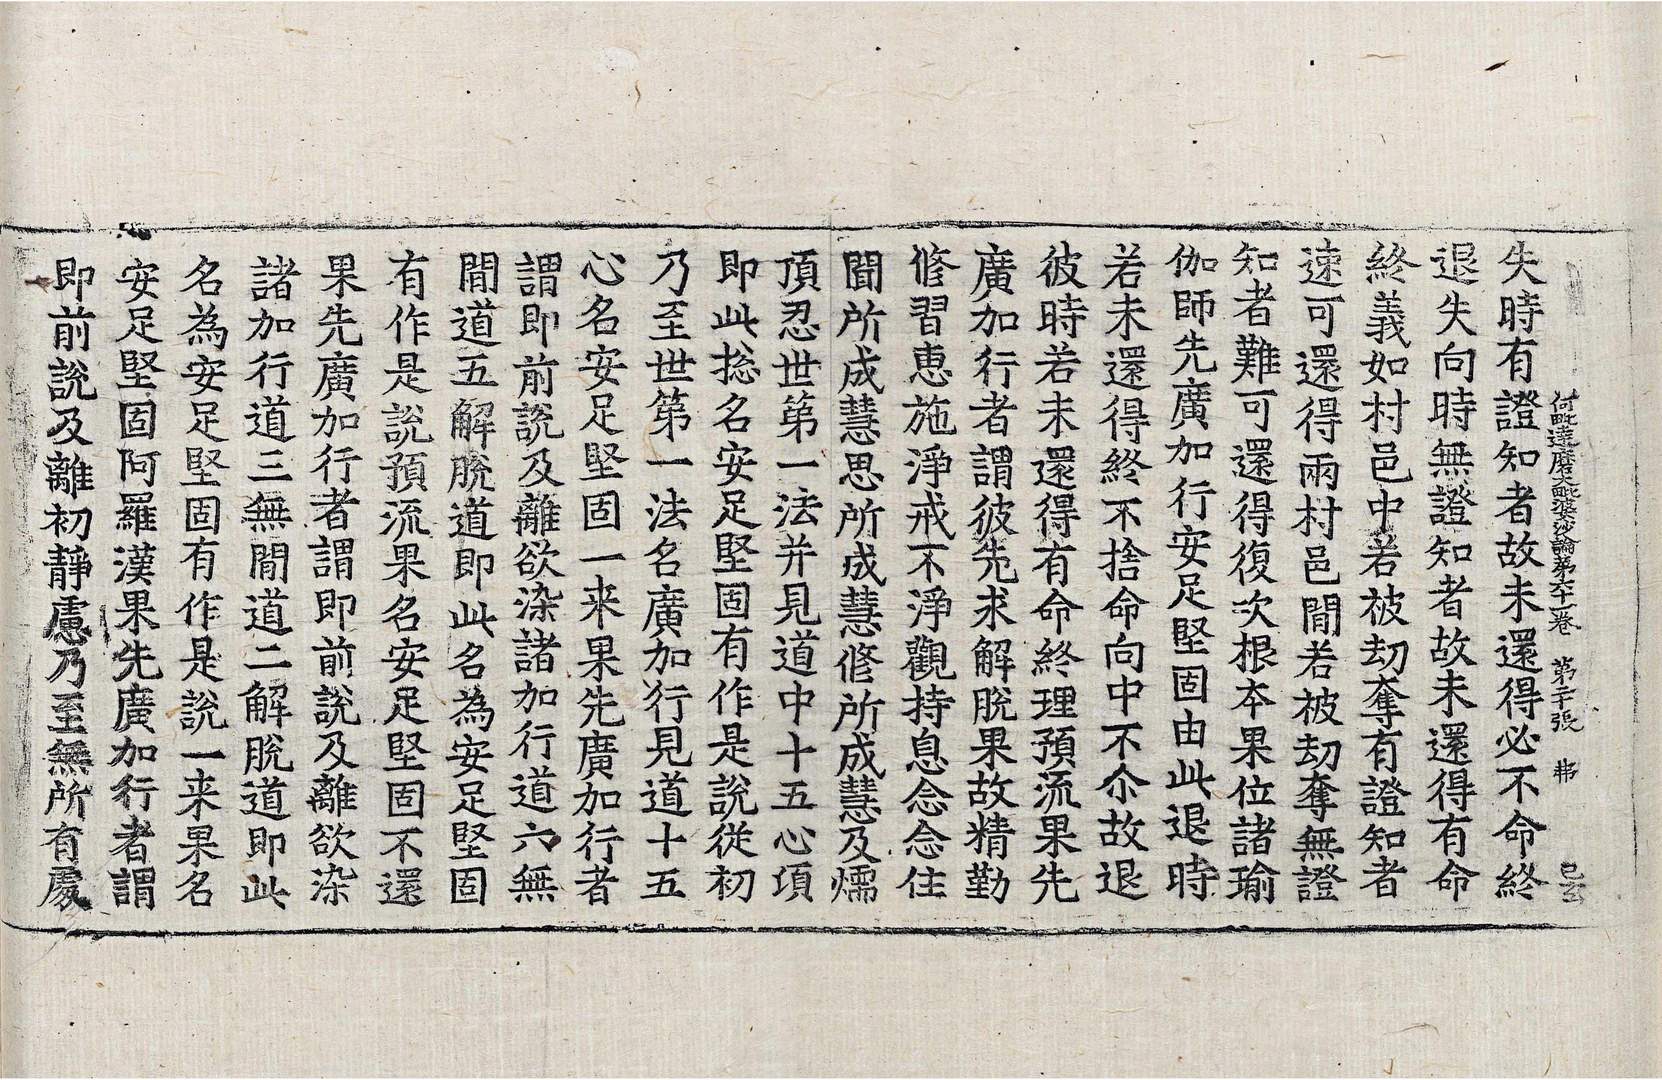 阿毗達磨大毗婆沙論第六十一卷 第二十張 弗
失時有證知者故未還得必不命終
退失向時無證知者故未還得有命
終義如村邑中若被劫奪有證知者
速可還得兩村邑間若被劫奪無證
知者難可還得復次根本果位諸瑜
伽師先廣加行安足堅固由此退時
若未還得終不捨命向中不尒故退
彼時若未還得有命終理預流果先
廣加行者謂彼先求解脫果故精勤
修習惠施淨戒不淨觀持息念念住
聞所成慧思所成慧修所成慧及煗
頂忍世第一法并見道中十五心頃
即此捴名安足堅固有作是說從初
乃至世第一法名廣加行見道十五
心名安足堅固一来果先廣加行者
謂即前說及離欲染諸加行道六無
間道五解脫道即此名為安足堅固
有作是說預流果名安足堅固不還
果先廣加行者謂即前說及離欲染
諸加行道三無間道二解脫道即此
名為安足堅固有作是說一来果名
安足堅固阿羅漢果先廣加行者謂
即前說及離初靜慮乃至無所有處